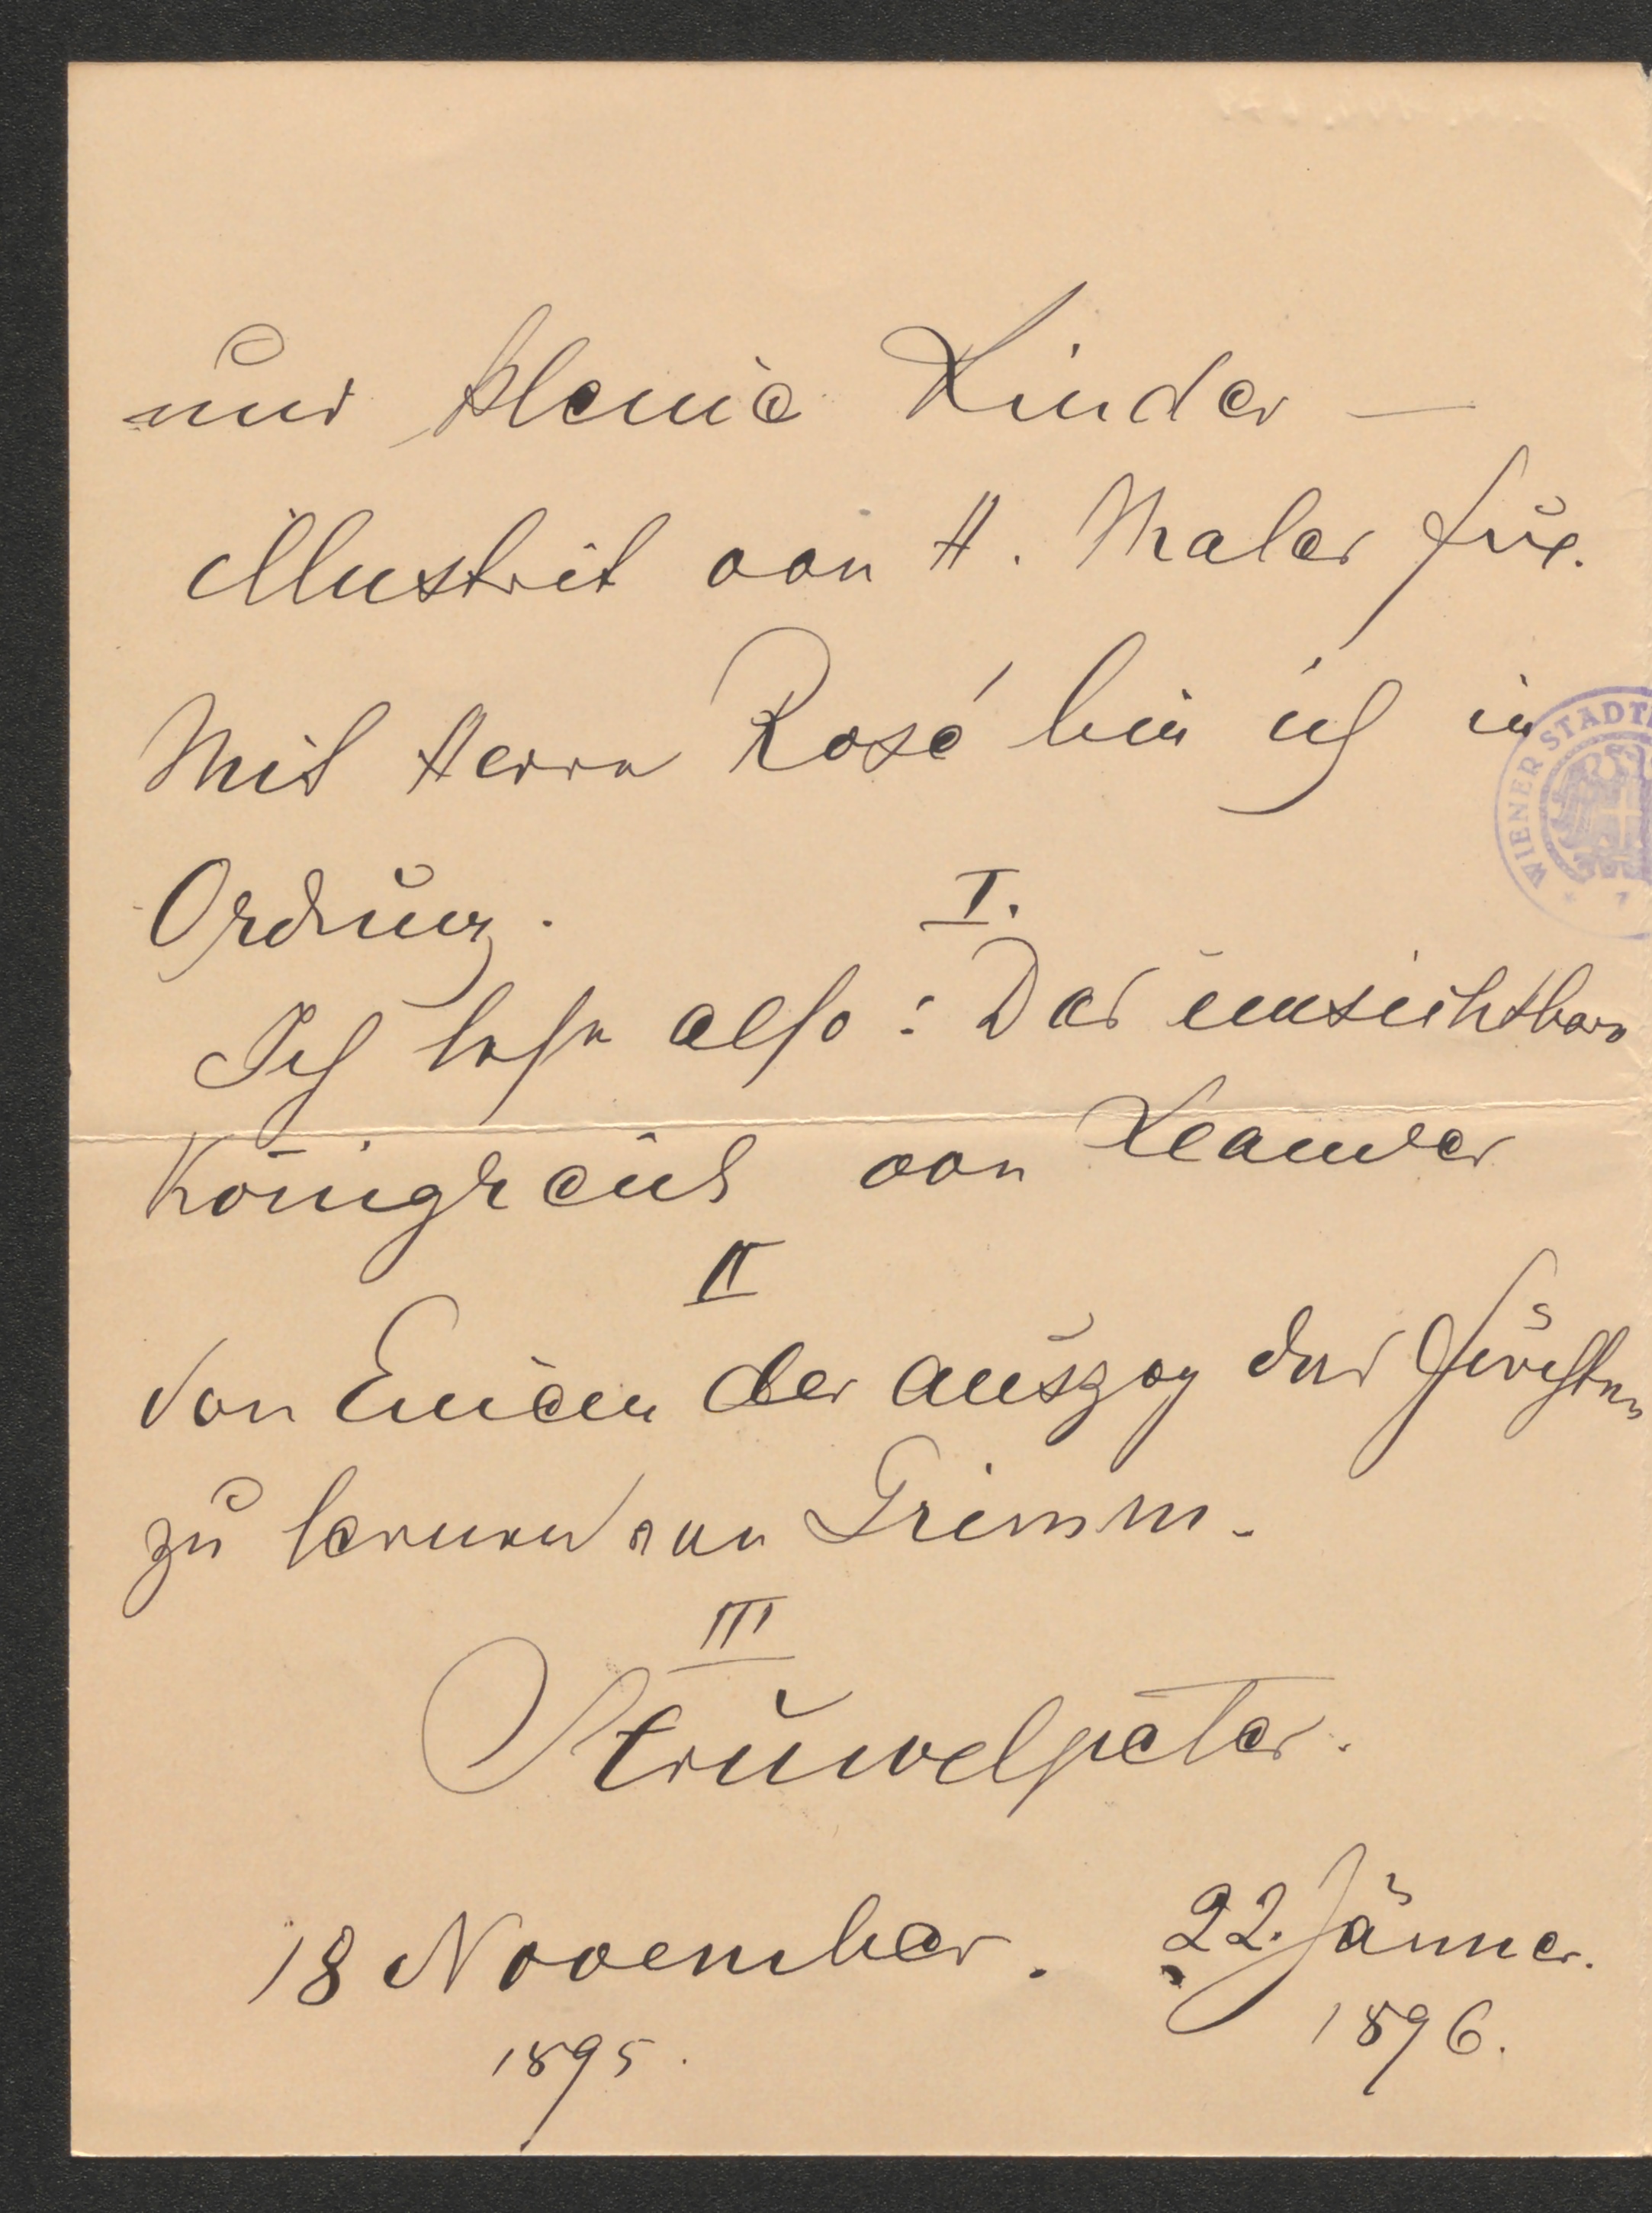 und kleine Kinder —
illustrirt von H. Maler Fux.
Mit Herrn Rosé bin ich in
Ordnung.
I.
Ich lese also: Das unsichtbare
Königreich von Leander
II
Von Einem der auszog das Fürchten
zu lernen von Grimm.
III
Struwelpeter.
18 November. 22. Jänner.
1895. 1896.
WIENER STADT